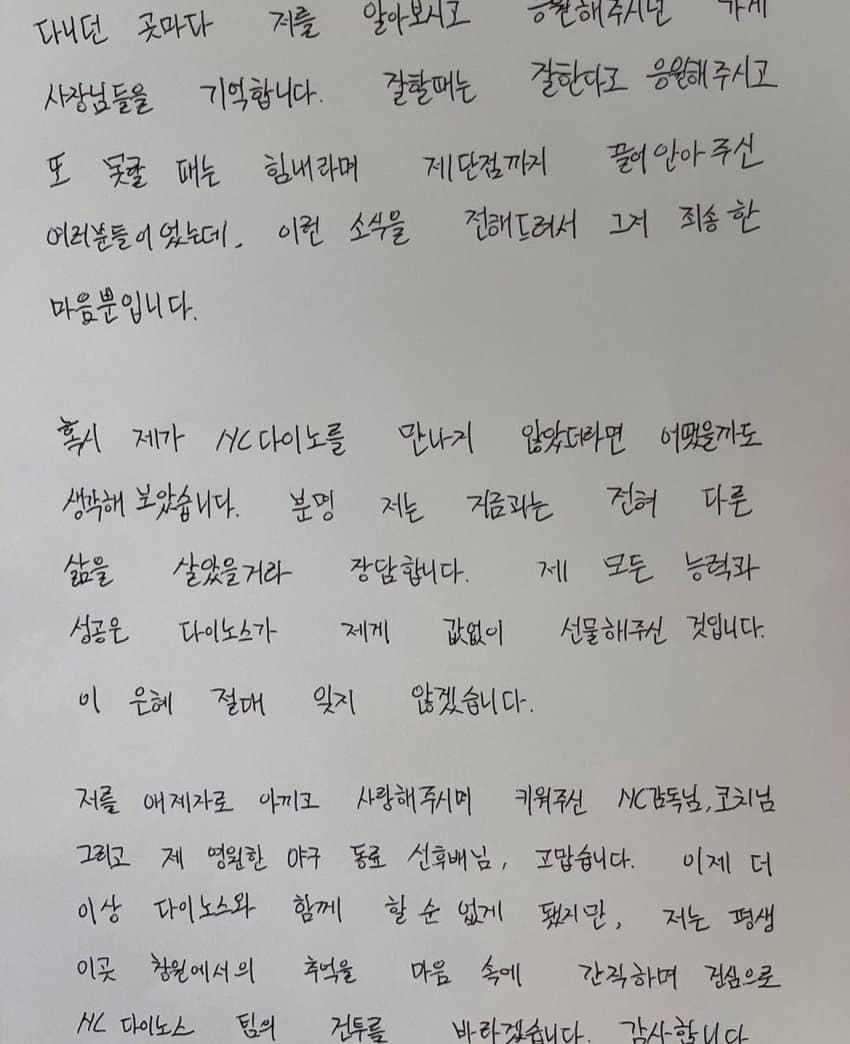 다니던 곳마다 저를 알아보시고 응원해주시던 가게
사장님들을 기억합니다. 잘할때는 잘한다고 응원해주시고
또 못할 때는 힘내라며 제단점까지 끌어안아 주신
여러분들이었는데, 이런 소식을 전해드려서 그저 죄송한
마음뿐입니다.
혹시 제가 NC다이노를 만나지 않았더라면 어땠을까도
생각해 보았습니다. 분명 저는 지금과는 전혀 다른
삶을 살았을거라 장담합니다. 제 모든 능력과
성공은 다이노스가 제게 값없이 선물해주신 것입니다.
이 은혜 절대 잊지 않겠습니다.
저를 애제자로 아끼고 사랑해주시며 키워주신 NC감독님, 코치님
그리고 제 영원한 야구 동료 선후배님, 고맙습니다. 이제 더
이상 다이노스와 함께 할 순 없게 됐지만, 저는 평생
이곳 창원에서의 추억을 마음 속에 간직하며 진심으로
NC 다이노스 팀의 건투를 바라겠습니다. 감사합니다